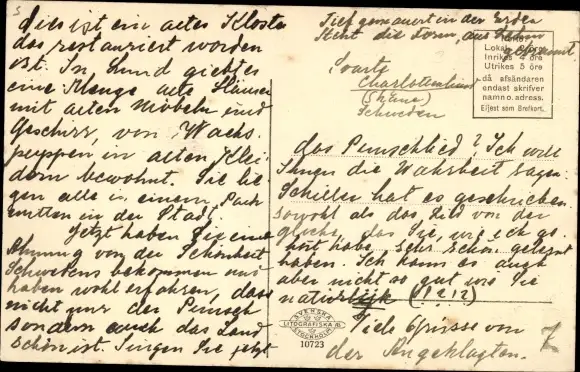 Dies ist ein altes Kloste
das restauriert worden
ist. In Lund giebt es
eine Menge alte Häuser
mit alten Möbeln und
Geschirr, von Wachs
puppen in alten Klei
dern bewohnt. Sie lie
gen alle in einem Park
mitten in der Stad
Jetzt haben Sie eine
Ahnung von der Schönheit
Schwedens bekommen und
haben wohl erfahren, dass
nicht nur der Punsch
sondern auch das Land
schön ist. Singen Sie jetzt
Tief gemauert in der Erden
Steht die Form, aus Lehm
gebrannt
Svarte
Charlottenlund
(Skåne)
Schweden
Lokal öre
Inrikes 4 öre
Utrikes 5 öre
då afsändaren
endast skrifver
namn o. adress.
Eljest som Brefkort.
das Punschlied? Ich will
Ihnen die Wahrheit sagen:
Schiller hat es geschrieben
sowohl als das Lied von der
Glocke, das Sie, wie ich ge
hört habe, sehr schön gelernt
haben. Ich kann es auch
aber nicht so gut wie Sie
natürlijk (!?!?)
Viele Grüsse von
der Angeklagten.
SVENSKA
LITOGRAFISKA AB.
STOCKHOLM
10723